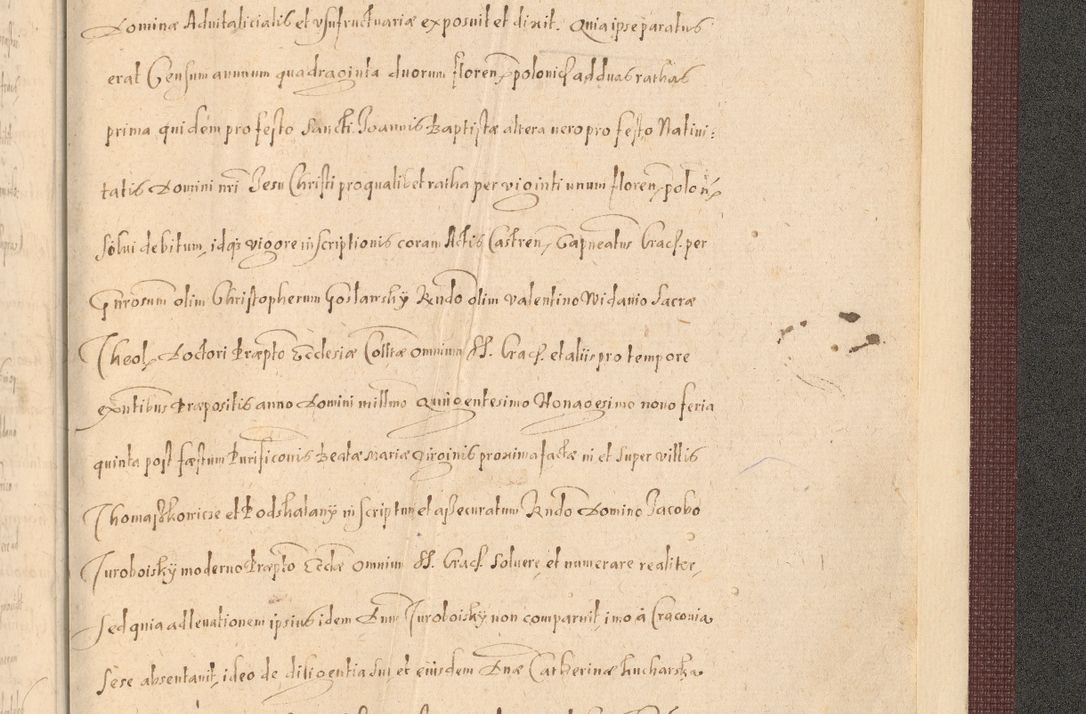 Dominæ Advitalicialis et vsufructuariæ exposuit et dixit. Quia ipse paratus
erat Censum annuum quadraginta duorum floren, polonicf ad duas rathas
prima quidem pro festo Sancti Joannis Baptistæ altera vero pro festo Nativi:
tatis Domini nri Jesu Christi pro qualibet ratha per viginti unum floren, polon,
solui debitum, idq3 vigore inscriptionis coram Actis Castren, Capneatus Cracf. per
Gnrosum olim Christopherum Gostawsky Rndo olim Valentino Widawio Sacræ
Theol, Doctori Præpto Ecclesiæ Colltæ omnium SS. Cracf. et aliis pro tempore
exntibus Præpositis anno Domini millmo Quingentesimo Nonagesimo nono feria
quinta post fæstum Purificonis Beatæ Mariæ Virginis proxima factæ in et super villis
Thomaszkowicze et Podskalany inscriptum et assecuratum Rndo Domino Jacobo
Juroboisky moderno Præpto Ecclæ omnium SS. Cracf. solvere et numerare realiter,
sed quia ad levationem ipsius idem Dnus Juroboisky non comparuit, imo à Cracovia
sese absentavit, ideo de diligentia sui et eiusdem Dnæ Catherinæ Kucharska